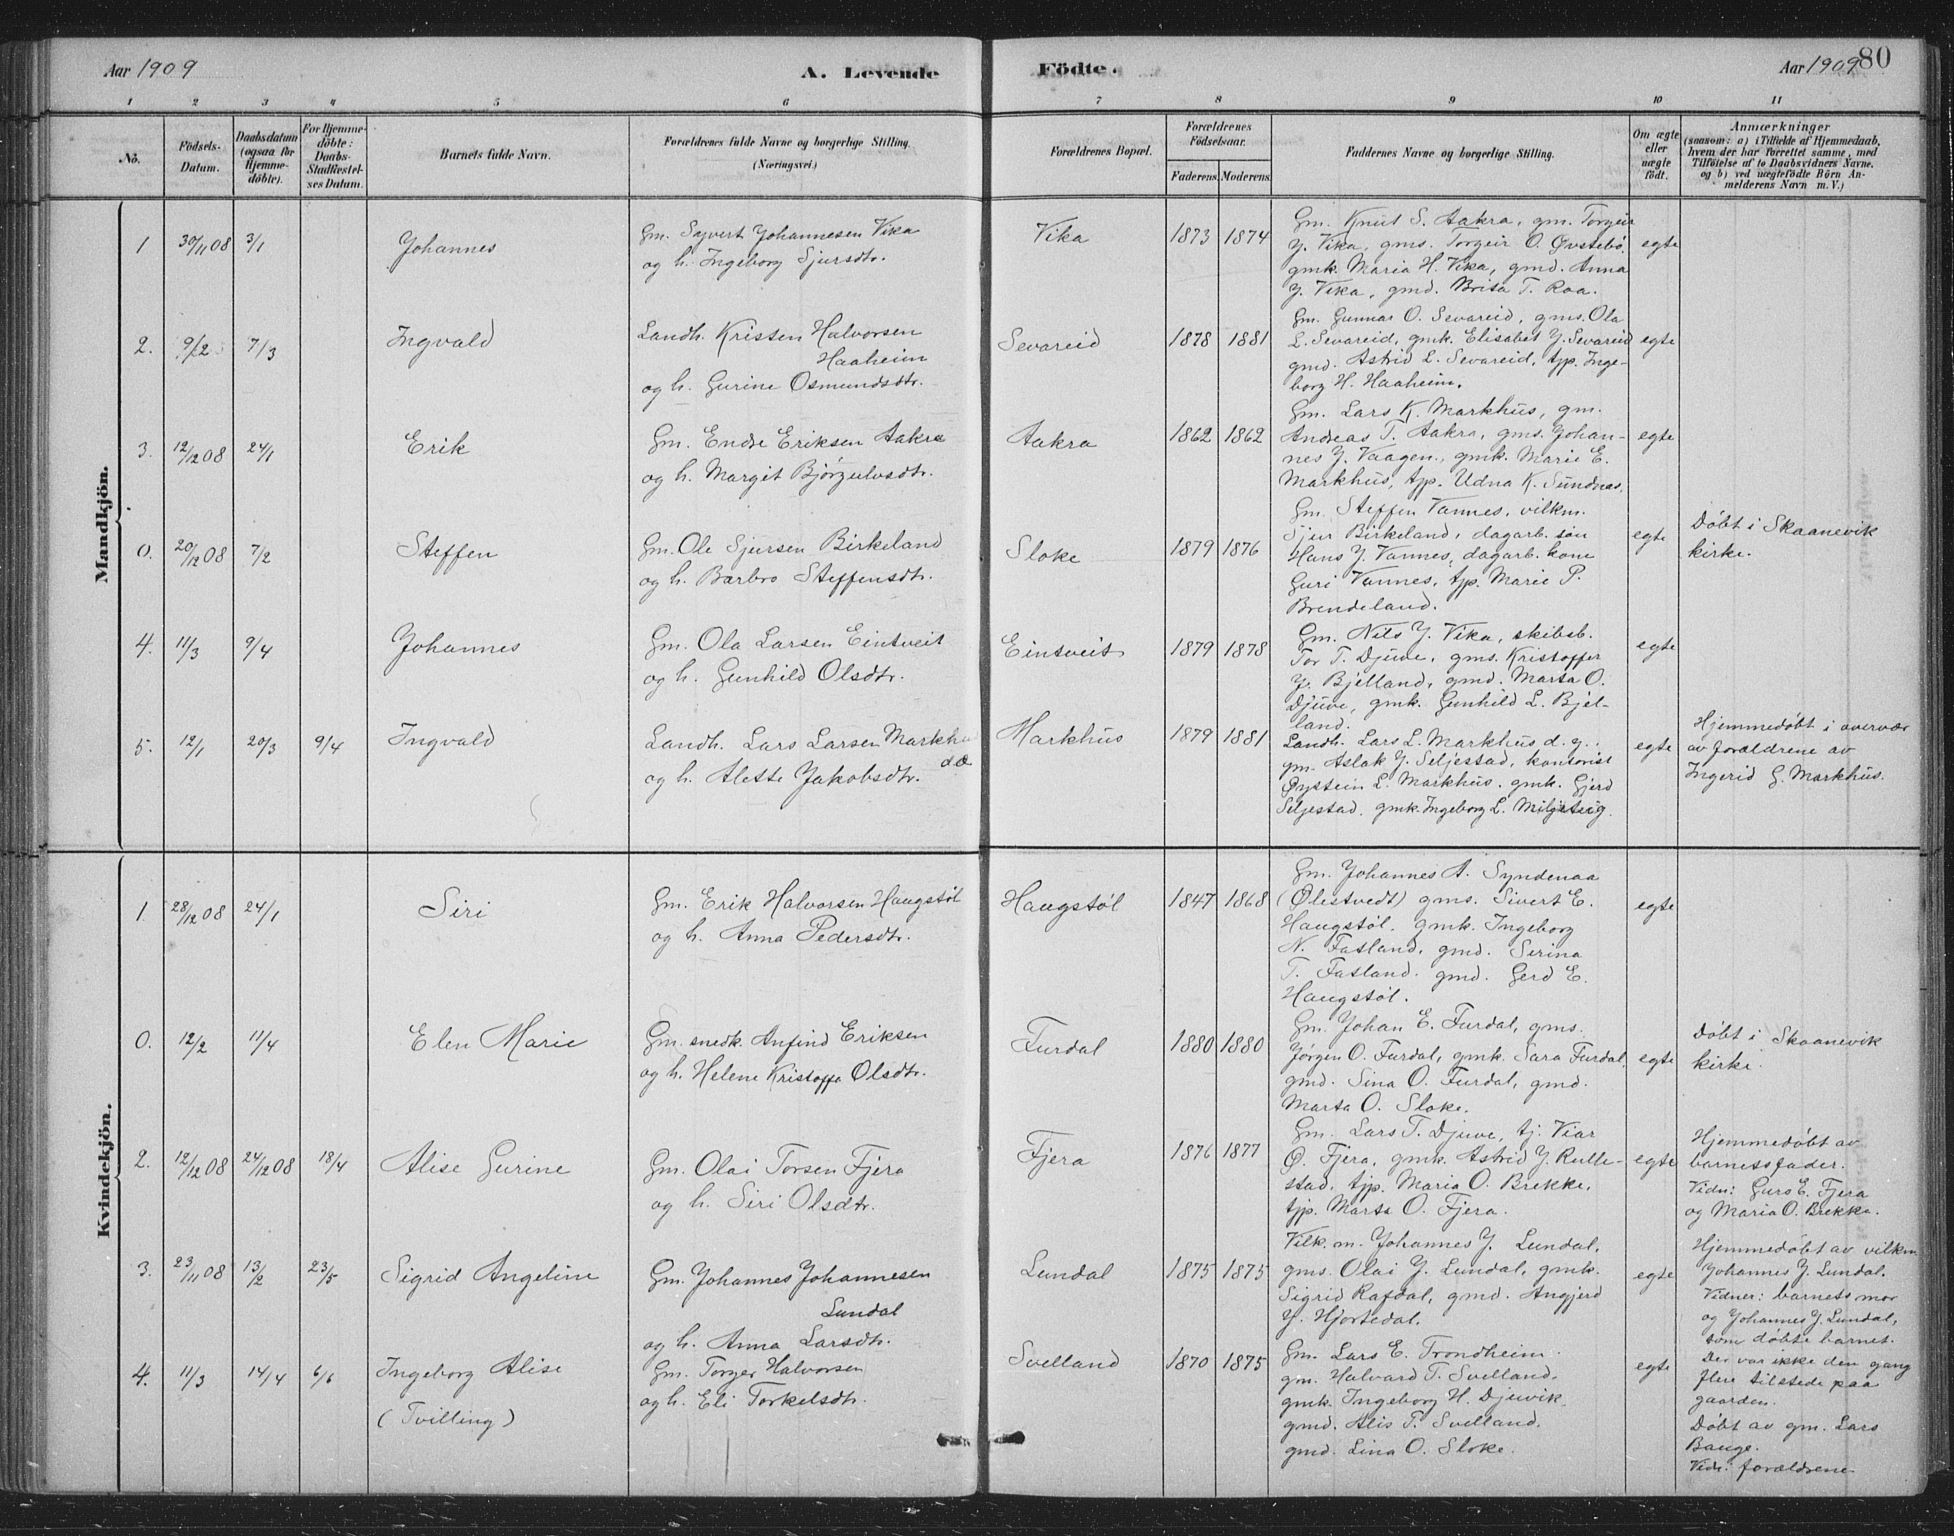 Aar 1909
A. Levende
Födte.
Aar 1909
80
1 2 3 4 5 6 7 8 9 10 11
No.
Födsels-
Datum.
Daabsdatum
(ogsaa for
Hjemme-
döbte).
For Hjemme-
döbte:
Daabs-
Stadfæstel-
ses Datum.
Barnets fulde Navn.
Forældrenes fulde Navne og borgerlige Stilling.
(Næringsvei.)
Forældrenes Bopæl.
Forældrenes
Födselsaar.
Faderens. Moderens.
Faddernes Navne og borgerlige Stilling.
Om ægte
eller
uægte
födt.
Anmærkninger
(saasom: a) i Tilfælde af Hjemmedaab,
hvem der har forrettet samme, med
Tilföielse af to Daabsvidners Navne,
og b) ved uægtefödte Börn An-
melderens Navn m. V.)
Mandkjön.
1 30/11 08 3/1
Johannes
Gm. Syvert Johannesen Vika
og h. Ingeborg Sjursdtr.
Vika
1873 1874
Gm. Knut S. Aakra, gm. Torgeir
J. Vika, gms. Torgeir O. Øvstebö,
gmk. Maria H. Vika, gmd. Anna
J. Vika, gmd. Brita T. Raa.
egte
2. 9/2 7/3
Ingvald
Landh. Kristen Halvorsen
Haaheim
og h. Gurine Osmundsdtr.
Sevareid
1878 1881
Gm. Gunnar O. Sevareid, gms. Ola
L. Sevareid, gmk. Elisabet J. Sevareid
gmd. Astrid L. Sevareid, tjp. Inge-
borg H. Haaheim.
egte
3. 12/12 08 24/1
Erik
Gm. Endre Eriksen Aakra
og h. Margit Bjørgulvsdtr.
Aakra
1862 1862
Gm. Lars K. Markhus, gm.
Andreas T. Aakra, gms. Johan-
nes J. Vaagen, gmk. Marie E.
Markhus, tjp. Udna K. Sundnes.
egte
0. 20/12 08 7/2
Steffen
Gm. Ole Sjursen Birkeland
og h. Barbro Steffensdtr.
Sloke
1879 1876
Gm. Steffen Vannes, vilkm.
Sjur Birkeland, dagarb. søn
Hans J. Vannes, dagarb. kone
Guri Vannes, tjp. Marie P.
Brendeland.
egte
Døbt i Skaanevik
kirke.
4. 11/3 9/4
Johannes
Gm. Ola Larsen Eintveit
og h. Gunhild Olsdtr.
Eintveit
1879 1878
Gm. Nils J. Vika, skibsb.
Tor T. Djuve, gms. Kristoffer
J. Bjelland, gmd. Marta O.
Djuve, gmk. Gunhild L. Bjel-
land.
egte
5. 12/1 20/3 9/4
Ingvald
Landh. Lars Larsen Markhu
d.æ
og h. Alette Jakobsdtr.
Markhus
1879 1881
Landh. Lars L. Markhus d. y.,
gm. Aslak J. Seljestad, kontorist
Øystein L. Markhus, gmk. Gjerd
Seljestad, gmk. Ingeborg L. Miljeteig.
egte
Hjemmedøbt i overvær
av forældrene av
Ingerid G. Markhus.
Kvindekjön.
1. 28/12 08 24/1
Siri
Gm. Erik Halvorsen Haugstøl
og h. Anna Pedersdtr.
Haugstøl
1847 1868
Gm. Johannes A. Syndenaa
(Ølestvedt) gms. Sivert E.
Haugstøl. gmk. Ingeborg
N. Fatland, gmd. Serina
T. Fatland. gmd. Gerd E.
Haugstøl.
egte
0. 12/2 11/4
Elen Marie
Gm. snedk. Anfind Eriksen
og h. Helene Kristoffa Olsdtr.
Furdal
1880 1880
Gm. Johan E. Furdal, gms.
Jørgen O. Furdal, gmk. Sara Furdal,
gmd. Sina O. Furdal, gmd.
Marta O. Sloke.
egte
Døbt i Skaanevik
kirke.
2. 12/12 08 24/12 08 18/4
Alise Gurine
Gm. Olai Torsen Fjera
og h. Siri Olsdtr.
Fjera
1876 1877
Gm. Lars T. Djuve, tj. Viar
Ø. Fjera, gmk. Astrid J. Rulle-
stad, tjp. Maria O. Brekke,
tjp. Marta O. Fjera.
egte
Hjemmedøbt av
barnets fader.
Vidn: Guro E. Fjera
og Maria O. Brekke.
3. 23/11 08 13/2 23/5
Sigrid Angeline
Gm. Johannes Johannesen
Lundal
og h. Anna Larsdtr.
Lundal
1875 1875
Vilk. m. Johannes J. Lundal,
gms. Olai J. Lundal, gmk.
Sigrid Rafdal, gmd. Angjerd
J. Hjortedal.
egte
Hjemmedøbt av vilkm
Johannes J. Lundal.
Vidner: barnets mor
og Johannes J. Lundal,
som døbte barnet.
Der var ikke den gang
flere tilstede paa
gaarden.
4. 11/3 14/4 6/6
Ingeborg Alise
(Tvilling)
Gm. Torger Halvorsen
og h. Eli Torkelsdtr.
Svelland
1870 1875
Gm. Lars E. Trondheim.
gm. Halvard T. Svelland.
gmk. Ingeborg H. Djuvik.
gmd. Alis T. Svelland.
gmd. Lina O. Sloke.
egte
Døbt av gm. Lars
Bauge.
Vidn: forældrene